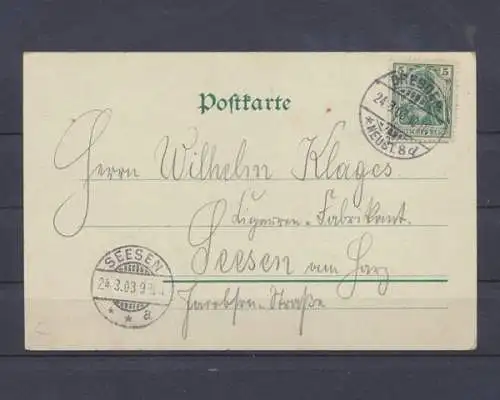 5 5
DRESDEN
24.3.03
*NEUST. 8 d
Postkarte
Herrn Wilhelm Klages
Cigarren-Fabrikant.
Seesen am Harz
Jacobson-Straße
SEESEN
3.03.9
* * a